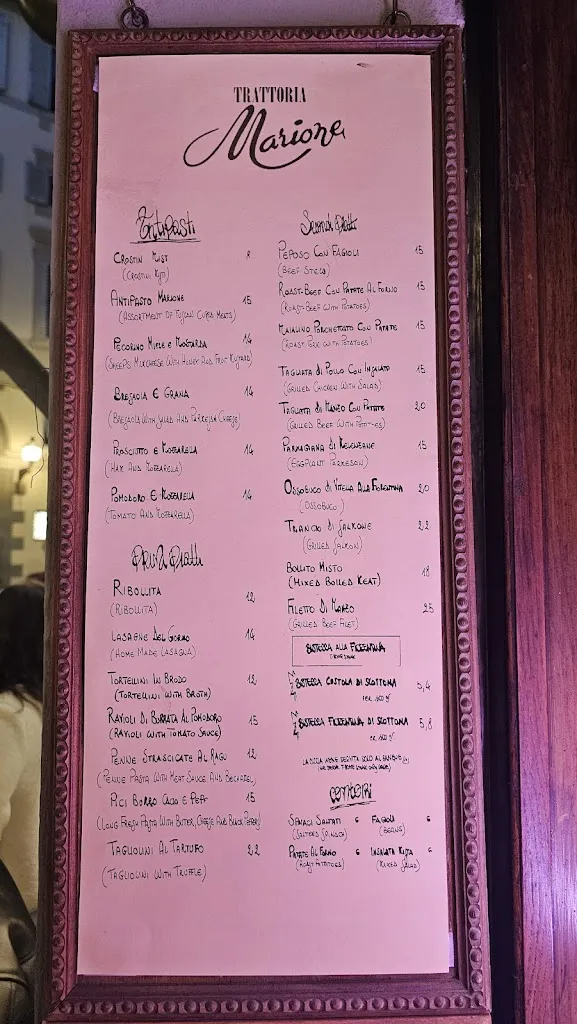 TRATTORIA
Marione
Antipasti
Crostini Mist
(Crostini Mix)
Antipasto Marione 15
(Assortment Of Tuscan Cured Meats)
Pecorino Miele e Mostarda 14
(Sheeps Milkcheese With Honey And Fruit Mustard)
Bresaola E Grana 14
(Bresaola With Salad And Parmesan Cheese)
Prosciutto e Mozzarella 14
(Ham And Mozzarella)
Pomodoro E Mozzarella 14
(Tomato And Mozzarella)
Primi Piatti
Ribollita 12
(Ribollita)
Lasagne Del Giorno 14
(Home Made Lasagna)
Tortellini In Brodo 12
(Tortellini With Broth)
Ravioli Di Burrata Al Pomodoro 15
(Ravioli With Tomato Sauce)
Penne Strascicate Al Ragu 12
(Penne Pasta With Meat Sauce And Bechamel)
Pici Burro Cacio e Pepe 15
(Long Fresh Pasta With Butter, Cheese And Black Pepper)
Tagliolini Al Tartufo 22
(Tagliolini With Truffle)
Secondi Piatti
Peposo Con Fagioli 15
(Beef Stew)
Roast-Beef Con Patate Al Forno 15
(Roast-Beef With Potatoes)
Maialino Porchettato Con Patate 15
(Roast Pork With Potatoes)
Tagliata Di Pollo Con Insalata 15
(Grilled Chicken With Salad)
Tagliata Di Manzo Con Patate 20
(Grilled Beef With Potatoes)
Parmigiana Di Melenzane 15
(Eggplant Parmeson)
Ossobuco Di Vitella Alla Fiorentina 20
(Ossobuco)
Trancio Di Salmone 22
(Grilled Salmon)
Bollito Misto 18
(Mixed Boiled Meat)
Filetto Di Manzo 25
(Grilled Beef Filet)
Bistecca alla Fiorentina
T-Bone Steak
Bistecca Costola Di Scottona 5,4
per 100 gr
Bistecca Fiorentina Di Scottona 5,8
per 100 gr
Contorni
Spinaci Saltati 6 Fagioli 6
(Salted Spinach) (Beans)
Patate Al Forno 6 Insalata Mista 6
(Roast Potatoes) (Mixed Salad)